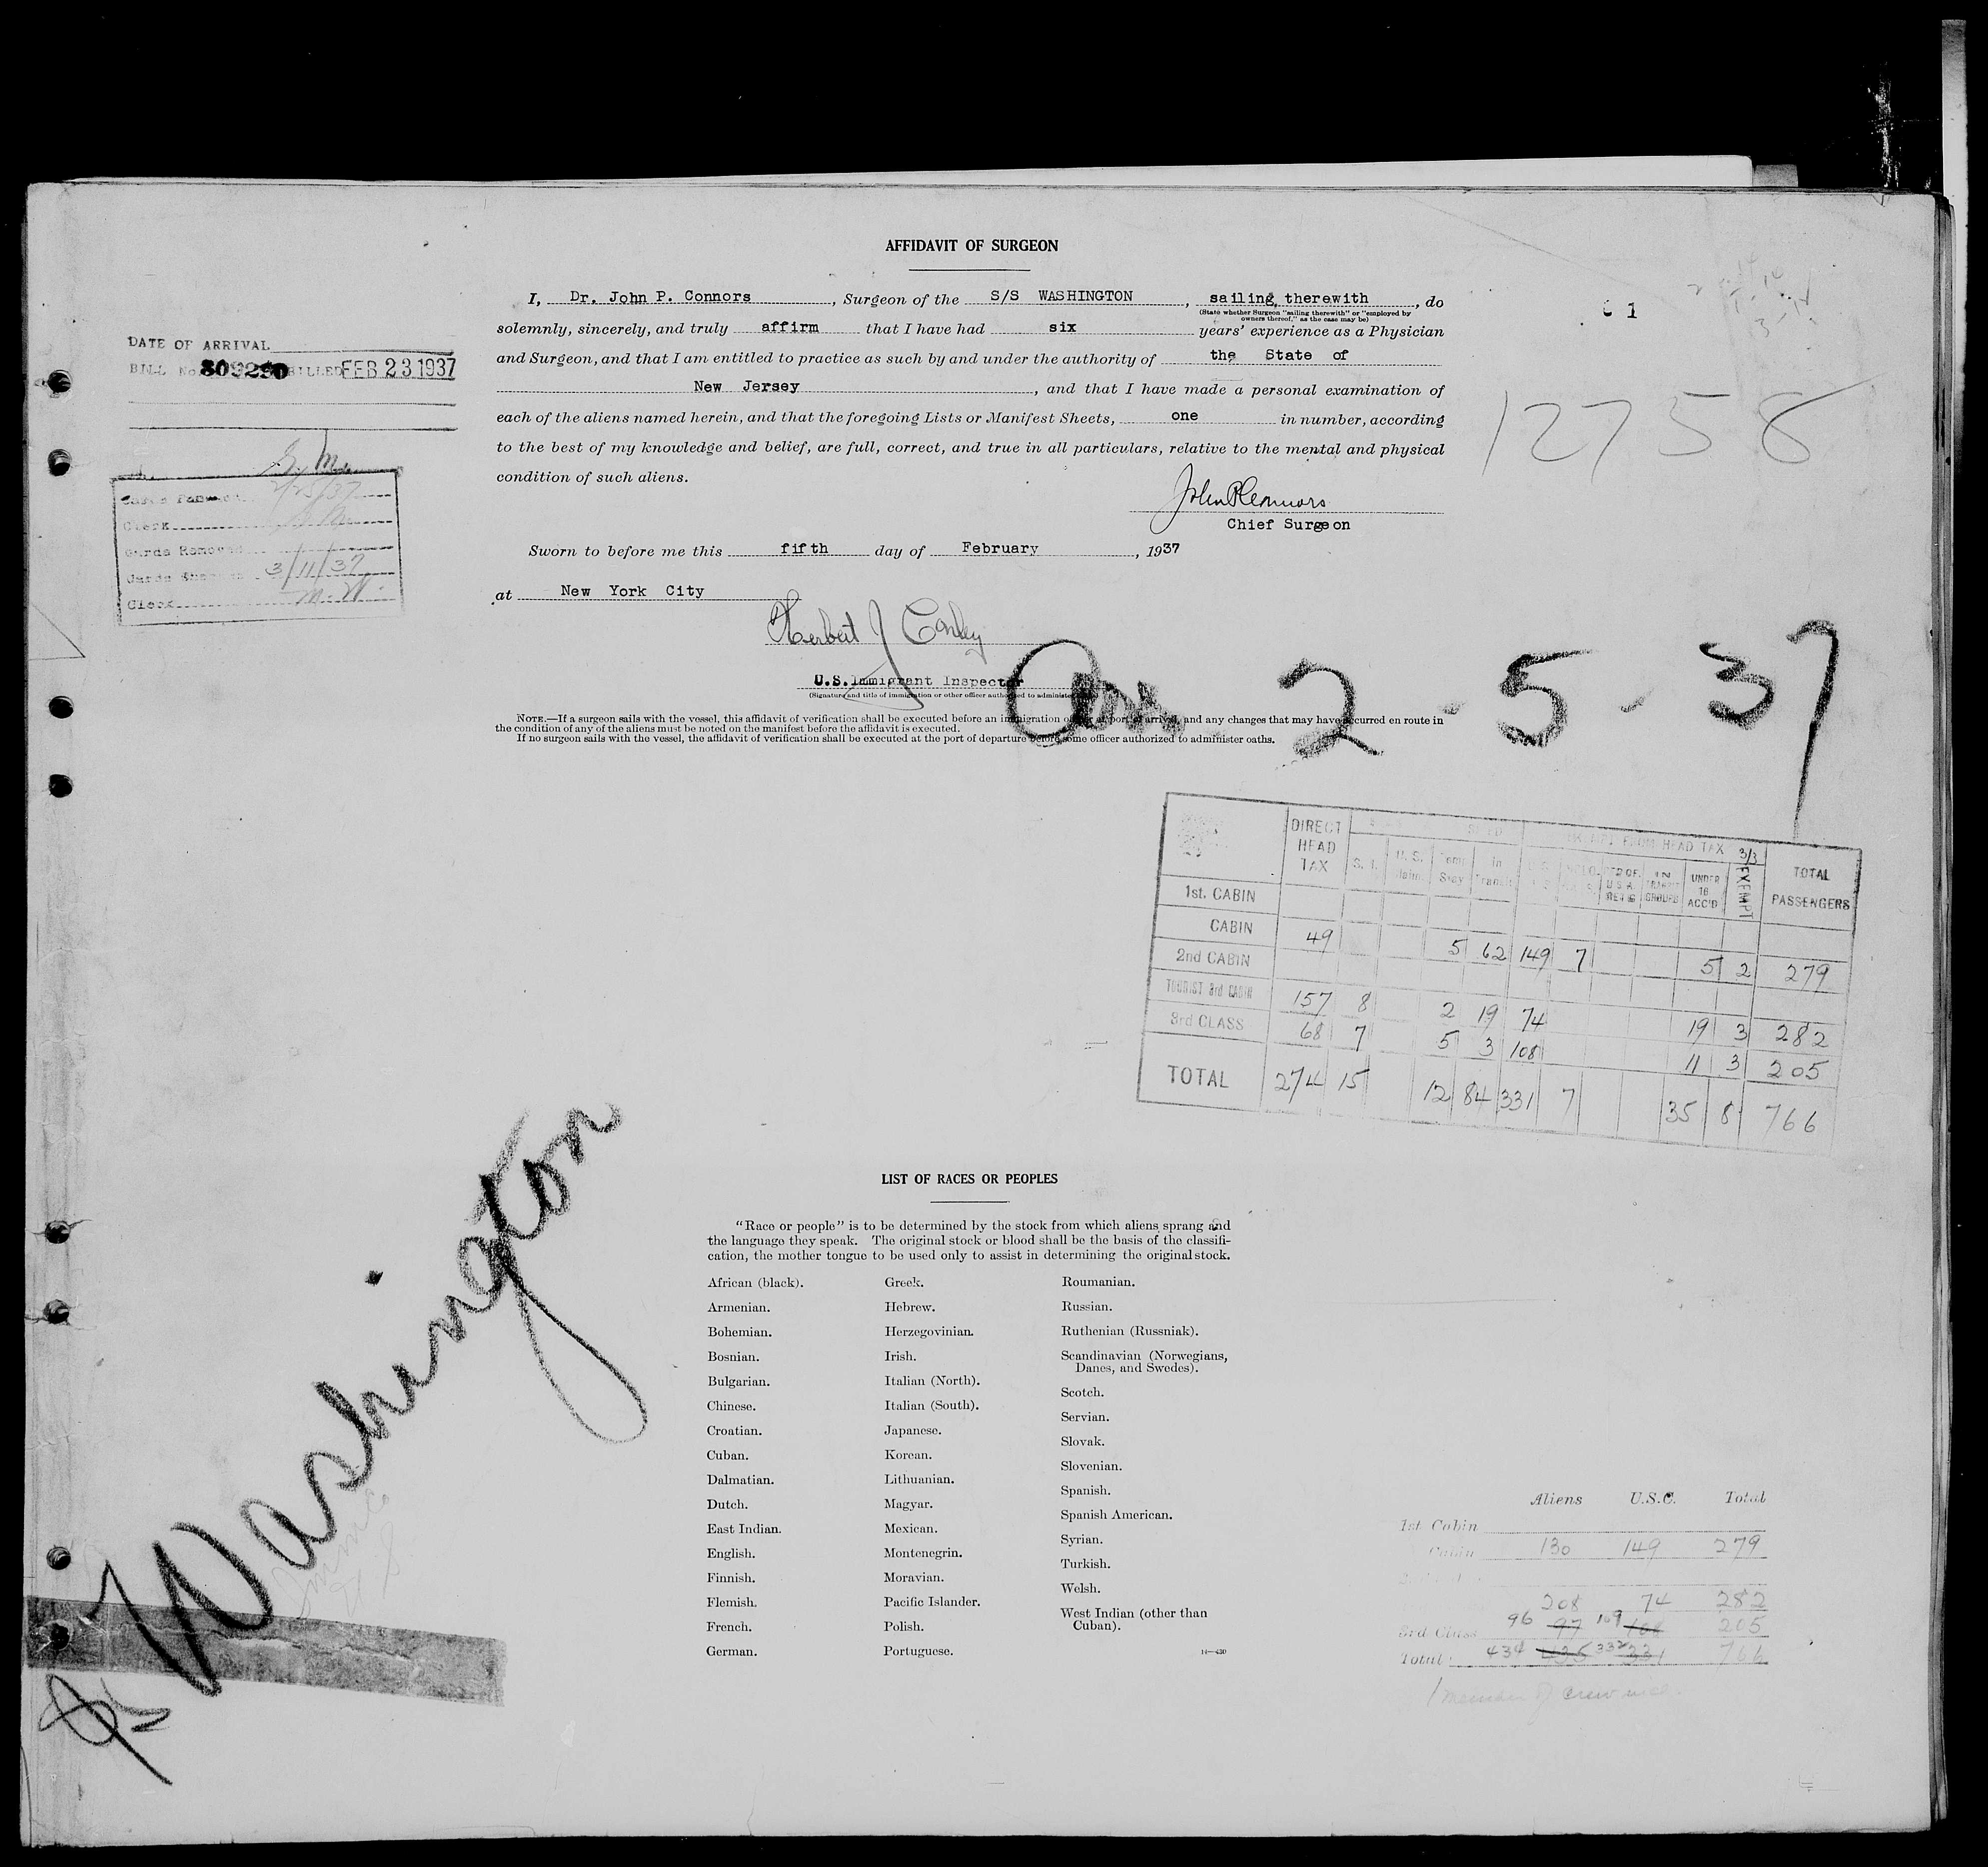 AFFIDAVIT OF SURGEON
I, Dr. John P. Connors, Surgeon of the S/S WASHINGTON, sailing therewith, do
(State whether Surgeon "sailing therewith" or "employed by
owners thereof," as the case may be)
solemnly, sincerely, and truly affirm that I have had six years' experience as a Physician
and Surgeon, and that I am entitled to practice as such by and under the authority of the State of
New Jersey, and that I have made a personal examination of
each of the aliens named herein, and that the foregoing Lists or Manifest Sheets, one in number, according
to the best of my knowledge and belief, are full, correct, and true in all particulars, relative to the mental and physical
condition of such aliens.
John P Connors
Chief Surgeon
Sworn to before me this fifth day of February, 1937
at New York City
Herbert J Conley
U.S. Immigrant Inspector
(Signature and title of immigration or other officer authorized to administer
NOTE.—If a surgeon sails with the vessel, this affidavit of verification shall be executed before an immigration officer at port of arrival, and any changes that may have occurred en route in
the condition of any of the aliens must be noted on the manifest before the affidavit is executed.
If no surgeon sails with the vessel, the affidavit of verification shall be executed at the port of departure before some officer authorized to administer oaths.
DATE OF ARRIVAL
BILL No. 809290 BILLED FEB 23 1937
2/25/37
Clerk
Cards Removed
3/11/37
Clerk M.W.
1
12758
Arr. 2-5-37
DIRECT HEAD TAX S.I. U.S. Claim. Temp Stay In Transit EXEMPT FROM HEAD TAX UNDER 16 ACC'D EXEMPT 3/3 TOTAL PASSENGERS
1st. CABIN
CABIN 49 5 62 149 7 5 2 279
2nd CABIN
TOURIST 3rd CABIN 157 8 2 19 74 19 3 282
3rd CLASS 68 7 5 3 108 11 3 205
TOTAL 274 15 12 84 331 7 35 8 766
LIST OF RACES OR PEOPLES
"Race or people" is to be determined by the stock from which aliens sprang and
the language they speak. The original stock or blood shall be the basis of the classifi-
cation, the mother tongue to be used only to assist in determining the original stock.
African (black).
Armenian.
Bohemian.
Bosnian.
Bulgarian.
Chinese.
Croatian.
Cuban.
Dalmatian.
Dutch.
East Indian.
English.
Finnish.
Flemish.
French.
German.
Greek.
Hebrew.
Herzegovinian.
Irish.
Italian (North).
Italian (South).
Japanese.
Korean.
Lithuanian.
Magyar.
Mexican.
Montenegrin.
Moravian.
Pacific Islander.
Polish.
Portuguese.
Roumanian.
Russian.
Ruthenian (Russniak).
Scandinavian (Norwegians,
Danes, and Swedes).
Scotch.
Servian.
Slovak.
Slovenian.
Spanish.
Spanish American.
Syrian.
Turkish.
Welsh.
West Indian (other than
Cuban).
Washington
Aliens U.S.C. Total
1st Cabin
Cabin 130 149 279
208 74 282
3rd Class 96 97 109 108 205
Total 434 435 332 331 766
1 member of crew incl.